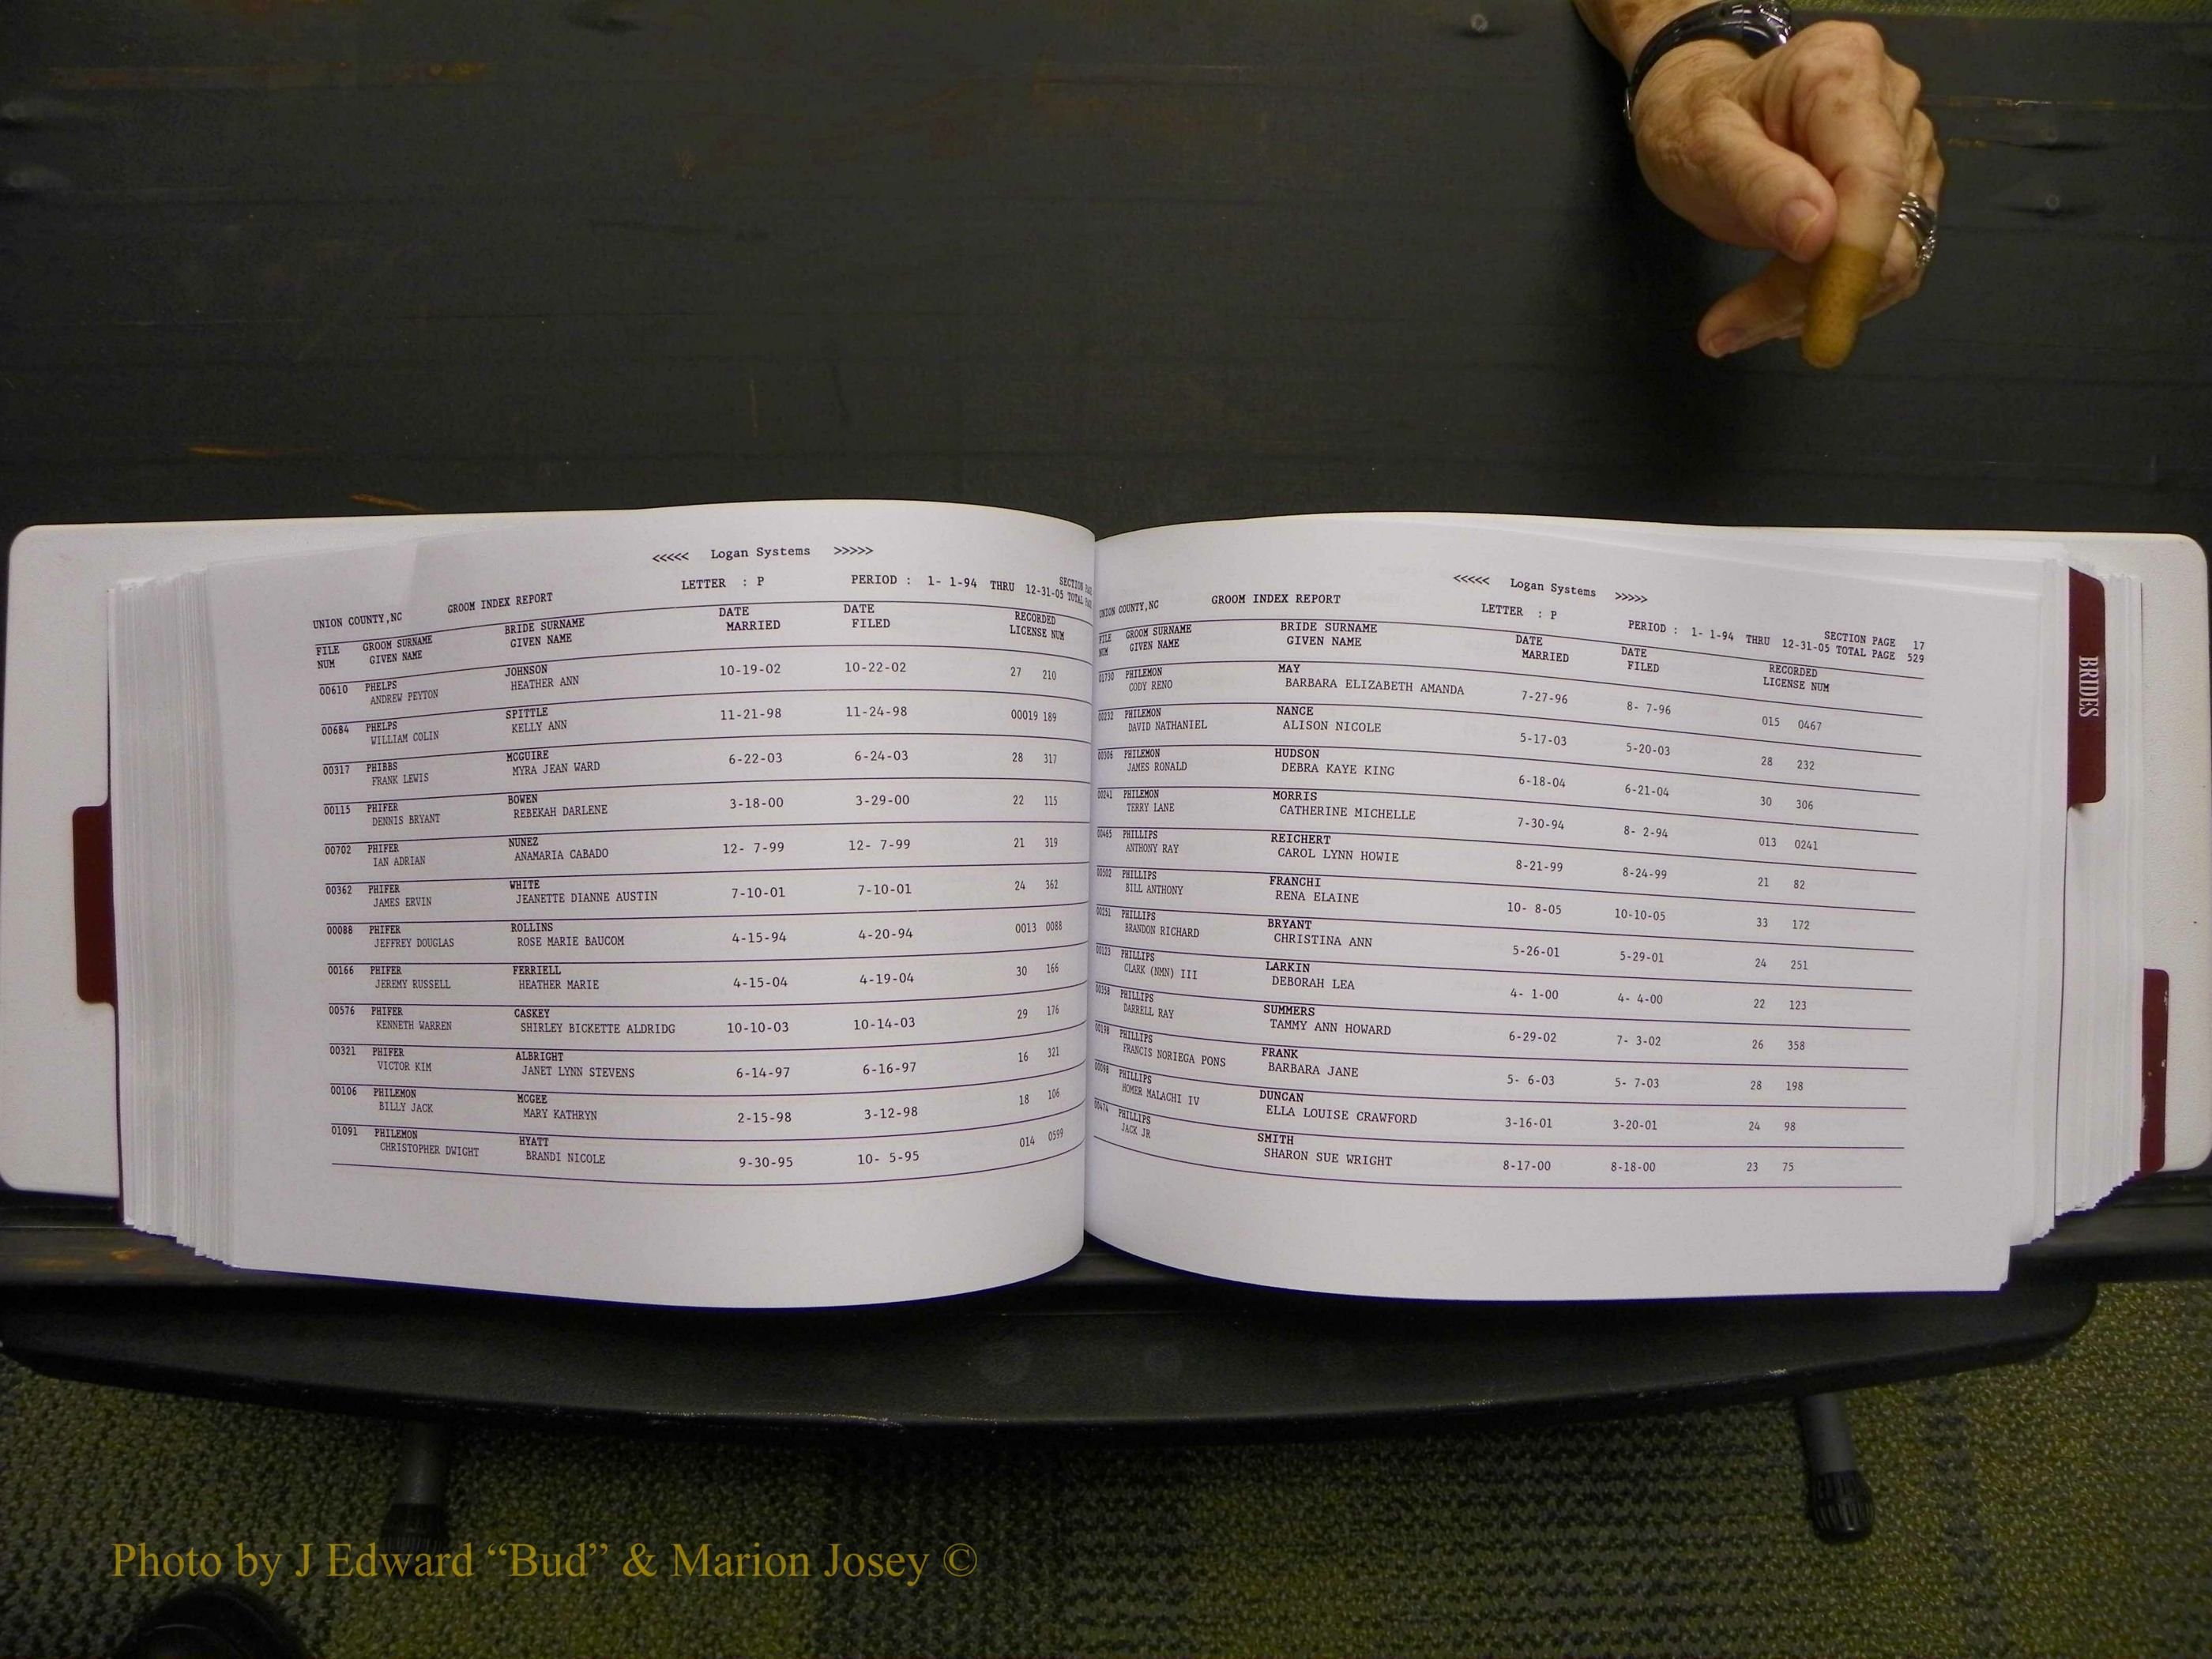 <<<<< Logan Systems >>>>>
UNION COUNTY,NC GROOM INDEX REPORT LETTER : P PERIOD : 1- 1-94 THRU 12-31-05 SECTION
TOTAL
FILE GROOM SURNAME BRIDE SURNAME DATE DATE RECORDED
NUM GIVEN NAME GIVEN NAME MARRIED FILED LICENSE NUM
00610 PHELPS JOHNSON 10-19-02 10-22-02 27 210
ANDREW PEYTON HEATHER ANN
00684 PHELPS SPITTLE 11-21-98 11-24-98 00019 189
WILLIAM COLIN KELLY ANN
00317 PHIBBS MCGUIRE 6-22-03 6-24-03 28 317
FRANK LEWIS MYRA JEAN WARD
00115 PHIFER BOWEN 3-18-00 3-29-00 22 115
DENNIS BRYANT REBEKAH DARLENE
00702 PHIFER NUNEZ 12- 7-99 12- 7-99 21 319
IAN ADRIAN ANAMARIA CABADO
00362 PHIFER WHITE 7-10-01 7-10-01 24 362
JAMES ERVIN JEANETTE DIANNE AUSTIN
00088 PHIFER ROLLINS 4-15-94 4-20-94 0013 0088
JEFFREY DOUGLAS ROSE MARIE BAUCOM
00166 PHIFER FERRIELL 4-15-04 4-19-04 30 166
JEREMY RUSSELL HEATHER MARIE
00576 PHIFER CASKEY 10-10-03 10-14-03 29 176
KENNETH WARREN SHIRLEY BICKETTE ALDRIDG
00321 PHIFER ALBRIGHT 6-14-97 6-16-97 16 321
VICTOR KIM JANET LYNN STEVENS
00106 PHILEMON MCGEE 2-15-98 3-12-98 18 106
BILLY JACK MARY KATHRYN
01091 PHILEMON HYATT 9-30-95 10- 5-95 014 0599
CHRISTOPHER DWIGHT BRANDI NICOLE
<<<<< Logan Systems >>>>>
UNION COUNTY,NC GROOM INDEX REPORT LETTER : P PERIOD : 1- 1-94 THRU 12-31-05 SECTION PAGE 17
TOTAL PAGE 529
FILE GROOM SURNAME BRIDE SURNAME DATE DATE RECORDED
NUM GIVEN NAME GIVEN NAME MARRIED FILED LICENSE NUM
01730 PHILEMON MAY 7-27-96 8- 7-96 015 0467
CODY RENO BARBARA ELIZABETH AMANDA
00232 PHILEMON NANCE 5-17-03 5-20-03 28 232
DAVID NATHANIEL ALISON NICOLE
00306 PHILEMON HUDSON 6-18-04 6-21-04 30 306
JAMES RONALD DEBRA KAYE KING
00241 PHILEMON MORRIS 7-30-94 8- 2-94 013 0241
TERRY LANE CATHERINE MICHELLE
00465 PHILLIPS REICHERT 8-21-99 8-24-99 21 82
ANTHONY RAY CAROL LYNN HOWIE
00502 PHILLIPS FRANCHI 10- 8-05 10-10-05 33 172
BILL ANTHONY RENA ELAINE
00251 PHILLIPS BRYANT 5-26-01 5-29-01 24 251
BRANDON RICHARD CHRISTINA ANN
00123 PHILLIPS LARKIN 4- 1-00 4- 4-00 22 123
CLARK (NMN) III DEBORAH LEA
00358 PHILLIPS SUMMERS 6-29-02 7- 3-02 26 358
DARRELL RAY TAMMY ANN HOWARD
00198 PHILLIPS FRANK 5- 6-03 5- 7-03 28 198
FRANCIS NORIEGA PONS BARBARA JANE
00098 PHILLIPS DUNCAN 3-16-01 3-20-01 24 98
HOMER MALACHI IV ELLA LOUISE CRAWFORD
00474 PHILLIPS SMITH 8-17-00 8-18-00 23 75
JACK JR SHARON SUE WRIGHT
BRIDES
Photo by J Edward “Bud” & Marion Josey ©